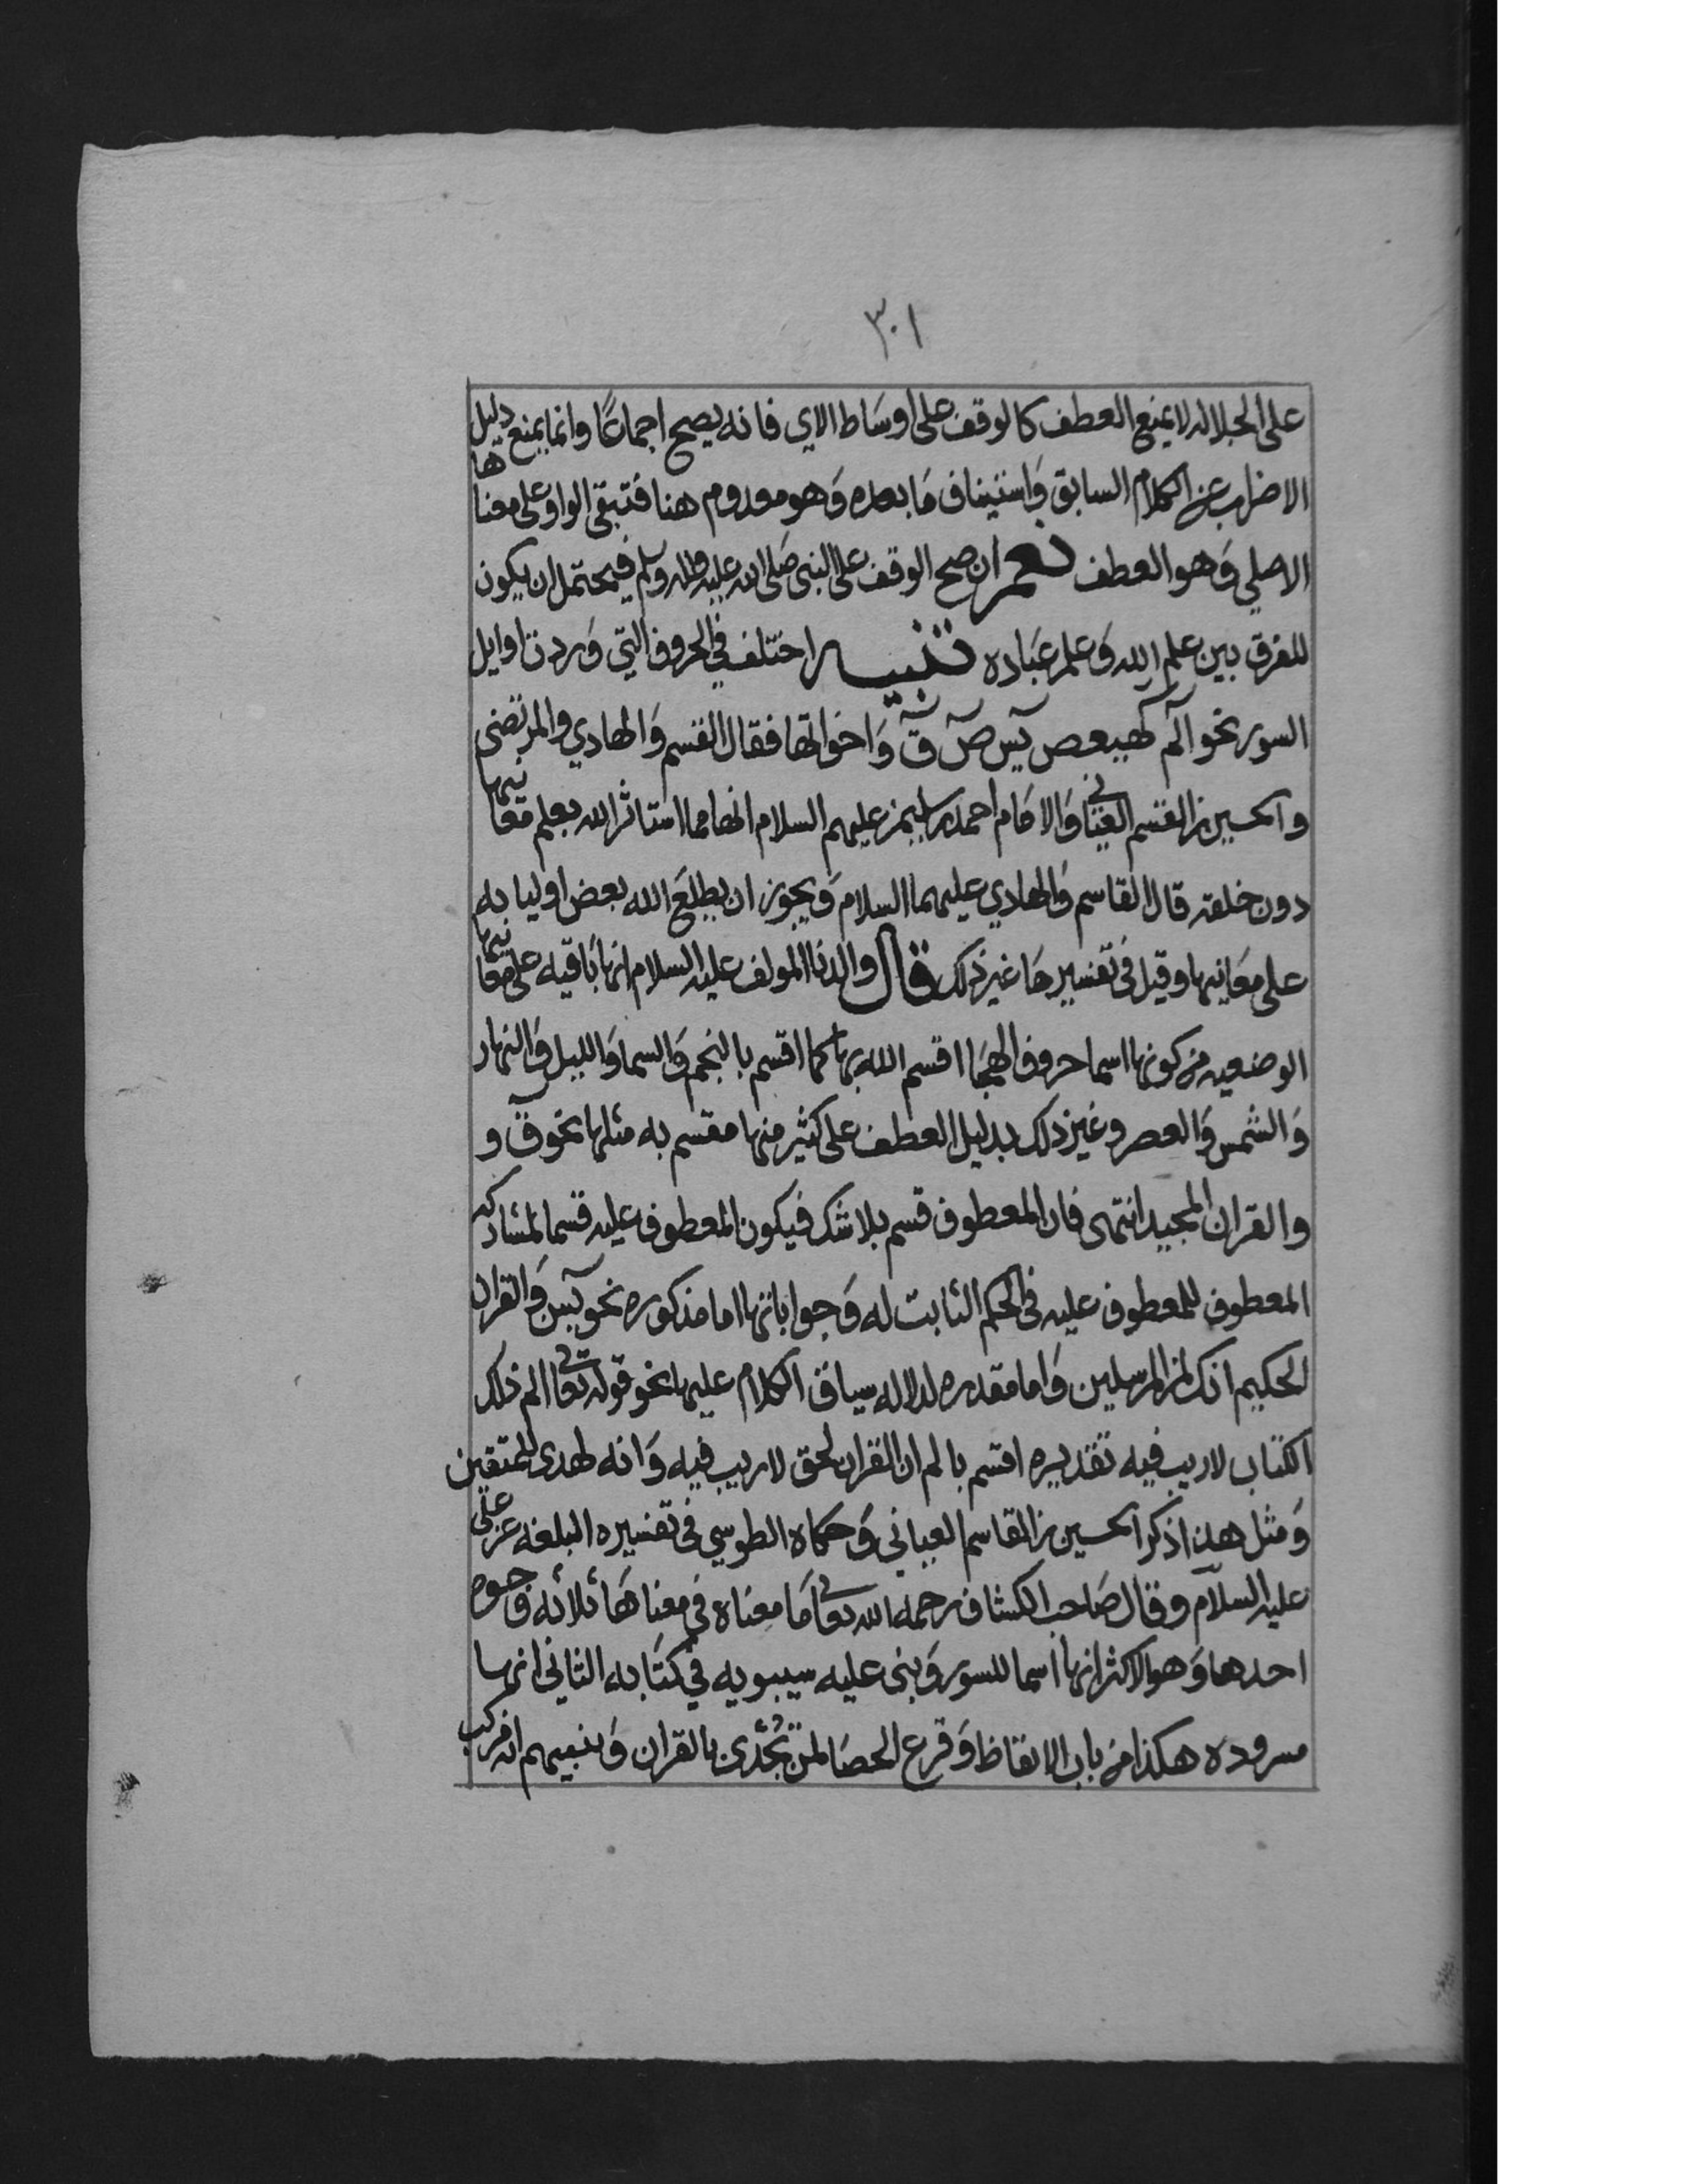 ٣٠١
على الجلاله لا يمنع العطف كالوقف على اوساط الاي فانه يصح اجماعًا وانما يمنع دليل
الاضراب عن الكلام السابق وَاستيناف مَا بعده وَهو معدوم هنا فتبقى الواو على معناها
الاصلي وَهو العطف نعم ان صح الوقف على النبي صَلى الله عليه واله وسلم فيحتمل ان يكون
للفرق بين علم الله وَعلم عبَاده تنبيه اختلف في الحروف التي وَردت اوايل
السور نحو آلم كهيعص يس ص ق وَاخواتها فقال القسم وَالهادي والمرتضى
والحسين بن القسم العياني وَالامَام احمد بن سليمن عليهم السلام انها مما استاثر الله بعلم معانيها
دون خلقه قال القاسم وَالهادي عليهما السلام وَيجوز ان يطلعَ الله بعض اوليا به
على معَانيها وقيل في تفسيرها غير ذلك قال والدنا المولف عليه السلام انها باقيه على معانيها
الوضعيه من كونها اسما حروف الهجَا اقسم الله بها كما اقسم بالنجم وَالسما وَالليل وَالنهار
وَالشمس وَالعصر وغير ذلك بدليل العطف على كثير منها مقسم به مثلها نحو ق و
والقران المجيد انتهى فان المعطوف قسم بلا شك فيكون المعطوف عليه قسما لمشاركه
المعطوف للمعطوف عليه في الحكم الثابت له وَجواباتها اما مذكوره نحو يس وَالقران
الحكيم انك لمن المرسلين وَاما مقدره لدلاله سياق الكلام عليها نحو قوله تعالى الم ذلك
الكتاب لا ريب فيه تقديره اقسم بالم ان القران لحق لا ريب فيه وَانه لهدى للمتقين
وَمثل هذا ذكر الحسين بن القاسم العياني وَحكاه الطوسي في تفسيره البلغه عن علي
عليه السلام وقال صَاحب الكشاف رحمه الله تعالى مَا معناه في معناهَا ثلاثه وجوه
احدها وَهو الاكثر انها اسما للسور وَبنى عليه سيبويه في كتَابه الثاني انها
مسروده هكذا من باب الايقاظ وَقرع العصَا لمن تُحُدّى بالقران وَتنبيههم انه مركب